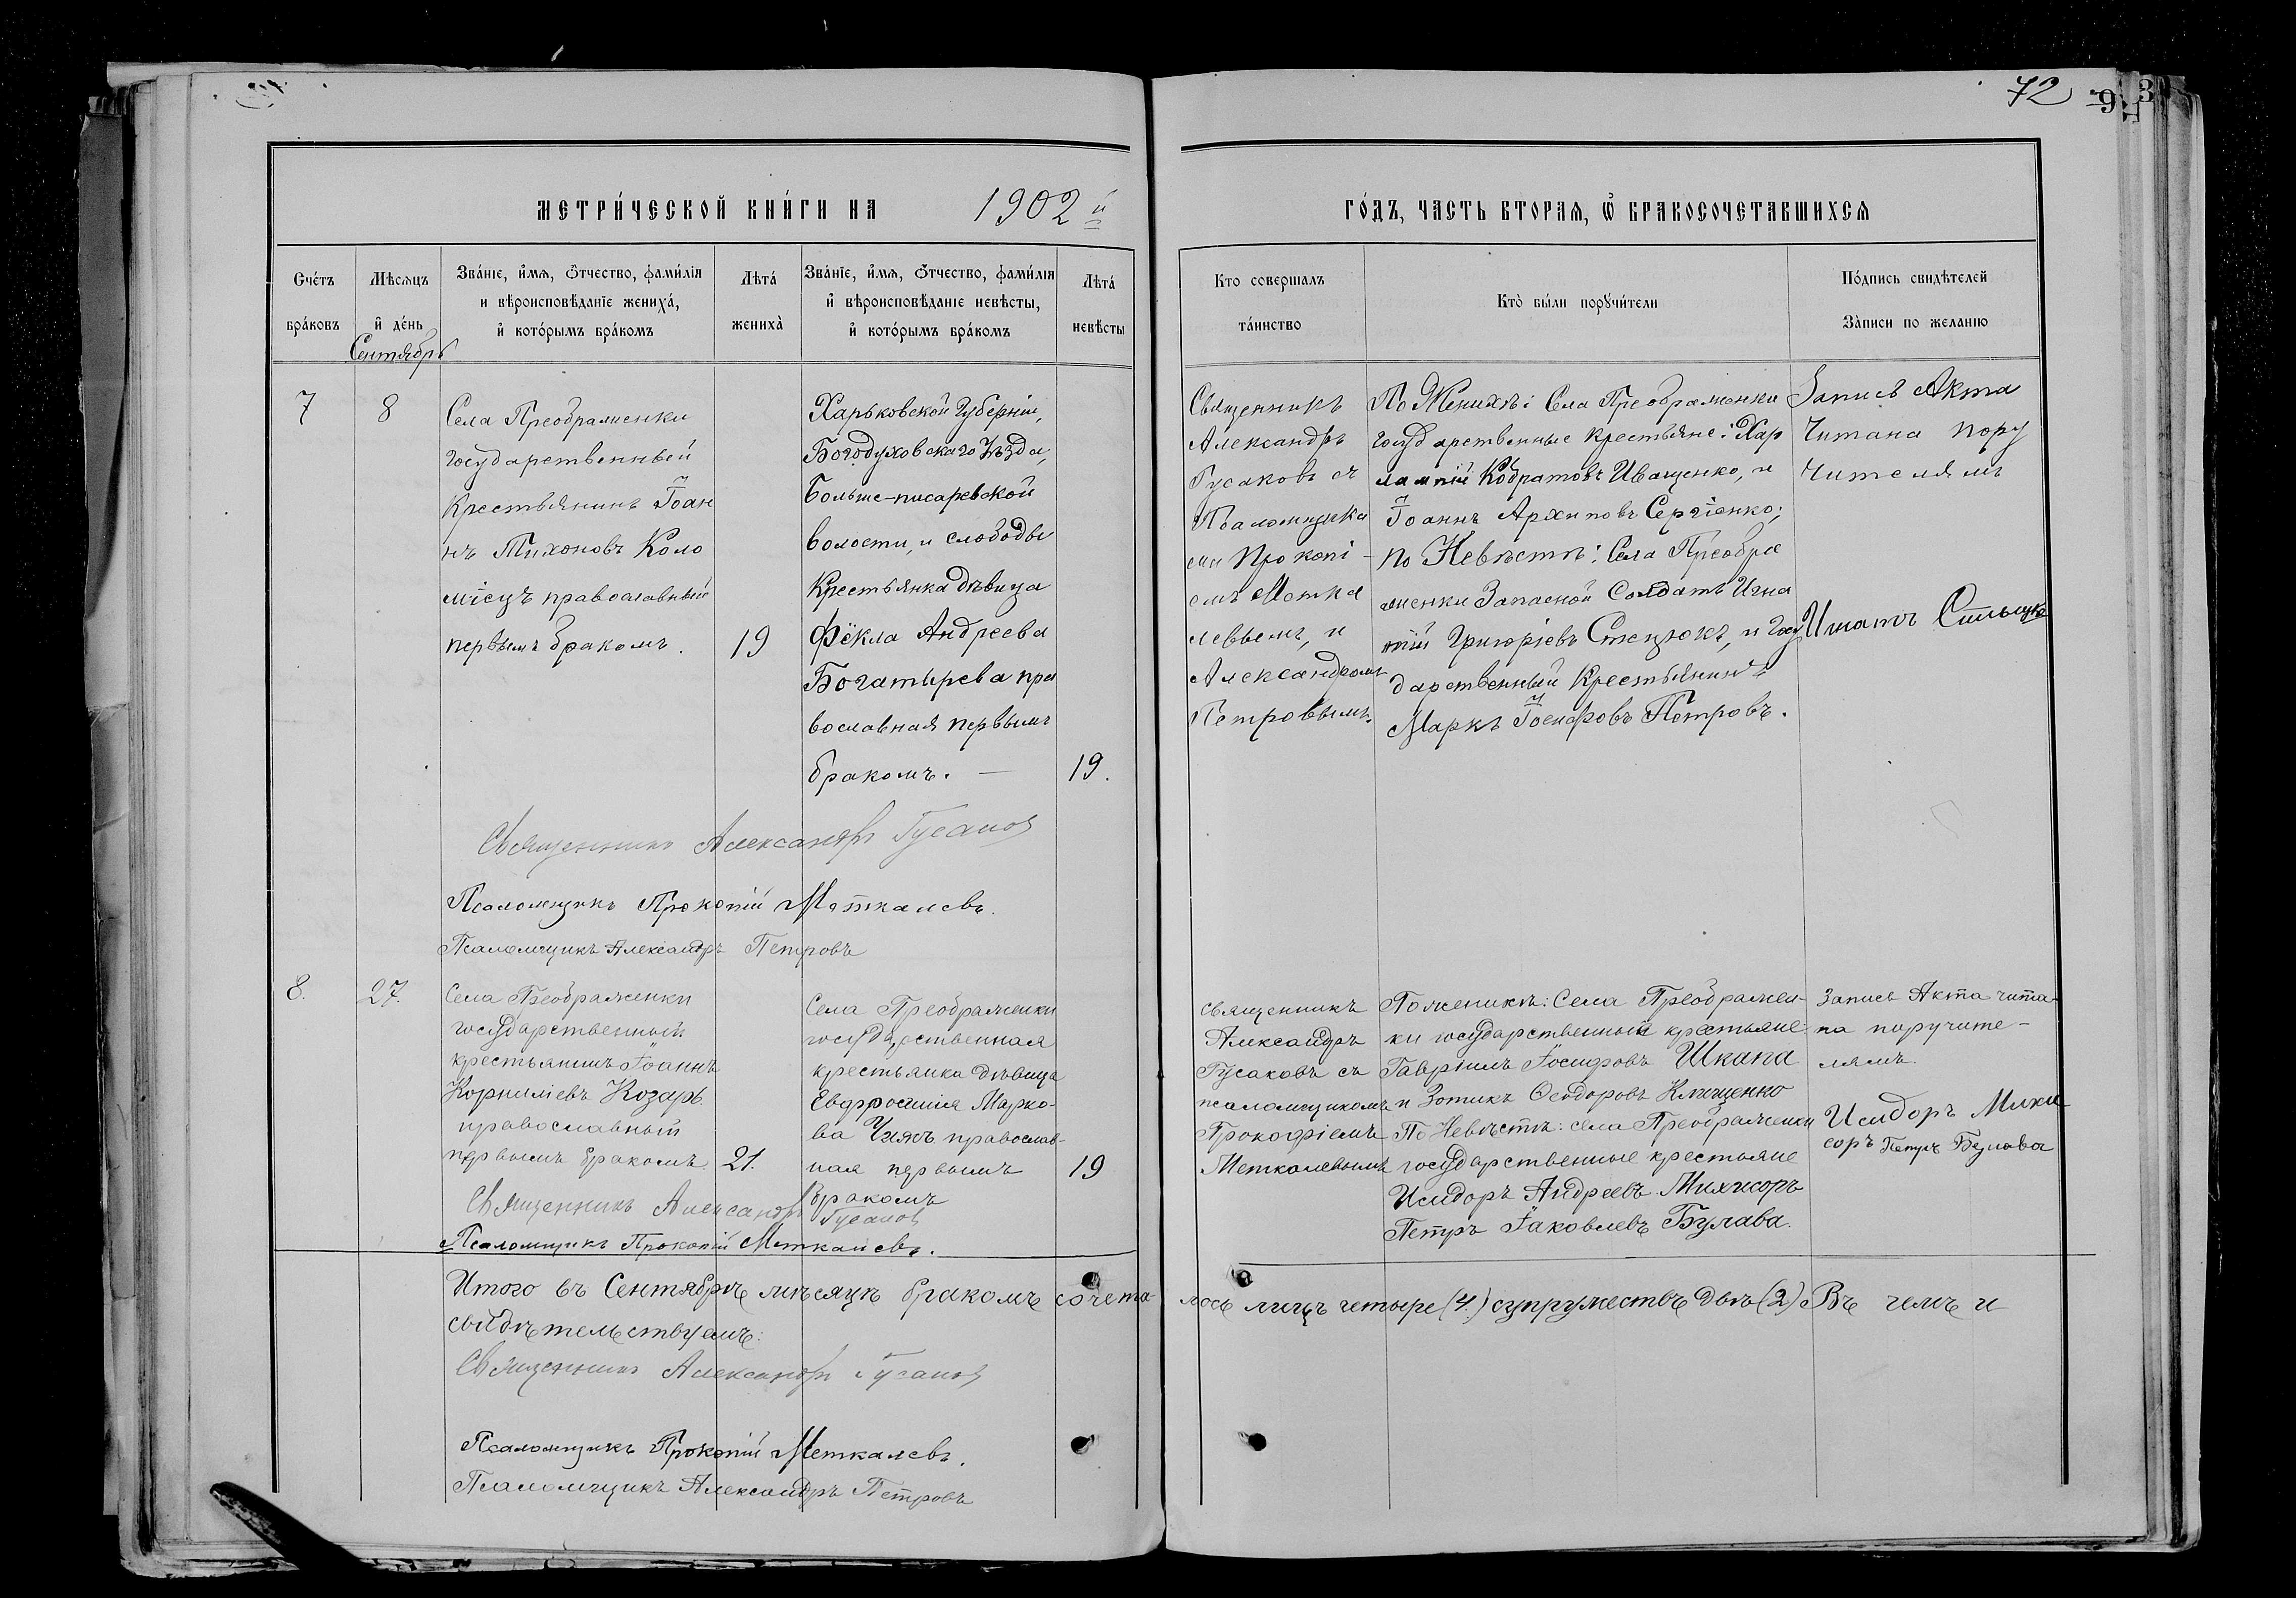 72
МЕТРИ́ЧЕСКОЙ КНИ́ГИ НА 1902 й
ГО́ДЪ, ЧАСТЬ ВТОРАѦ, Ѡ҆ БРАКОСОЧЕТАВШИХСѦ
Сче́тъ
бра́ковъ
Мѣсѧцъ
и҆ де́нь
Сентябрь
Зва́нїе, и҆́мѧ, ѻ҆́тчество, фами́лїѧ
и вѣроисповѣ́данїе жениха́,
и҆ кото́рымъ бра́комъ
Лѣта́
жениха̀
Зва́нїе, и҆́мѧ, ѻ҆́тчество, фами́лїѧ
и҆ вѣроисповѣ́данїе невѣ́сты,
и҆ кото́рымъ бра́комъ
Лѣта́
невѣ́сты
Кто совершалъ
та́инство
Кто̀ бы́ли порꙋчи́тели
По́дпись свидѣ́телей
За̀писи по желанїю
7
8
Села Преображенки
государственный
Крестьянинъ Іоан
нъ Тихоновъ Коло
міецъ православный
первымъ бракомъ.
19
Харьковской Губерніи,
Богодуховскаго Уѣзда,
Больше-писаревской
волости, и слободы
Крестьянка дѣвица
Ѳёкла Андреева
Богатырева пра
вославная первымъ
бракомъ. —
19.
Священникъ
Александръ
Гусаковъ съ
Псаломщика
ми Прокопі-
емъ Метка
левымъ, и
Александромъ
Петровымъ.
По Женихѣ: Села Преображенки
государственные крестьяне: Хар
лампій Кодратовъ Иващенко, и
Іоаннъ Архиповъ Сергіенко;
по Невѣстѣ: Села Преобра
женки Запасной Солдатъ Игна
тій Григоріевъ Стецюкъ, и Госу
дарственный Крестьянинъ
Маркъ Іосифовъ Петровъ.
Запись Акта
Читана пору
чителямъ
Игнатъ
Священникъ Александръ Гусаковъ
Псаломщикъ Прокопій Меткалевъ.
Псаломщикъ Александръ Петровъ
8.
27.
Села Преображенки
государственный
крестьянинъ Іоаннъ
Корниліевъ Козарь.
православный
первымъ бракомъ.
21.
Села Преображенки
государственная
крестьянка дѣвица
Евфросинія Марко-
ва Чиякъ православ-
ная первымъ
бракомъ
19
священникъ
Александръ
Гусаковъ съ
псаломщикомъ
Прокофіемъ
Меткалевымъ
По женихѣ: Села Преображен-
ки государственный крестьяне
Гавріилъ Іосифовъ Шкапа
и Зотикъ Ѳеодоровъ Клищенко
По Невѣстѣ: села Преображенки
государственные крестьяне
Исидоръ Андреевъ Михисоръ
Петръ Іаковлевъ Булава.
Запись Акта чита-
на поручите-
лямъ.
Исидоръ Михи
соръ Петръ Булава
Священникъ Александръ
Гусаковъ
Псаломщикъ Прокопій Меткалевъ.
Итого въ Сентябрѣ мѣсяцѣ бракомъ сочета-
лось лицъ четыре (4.) супружествъ двѣ (2) Въ чемъ и
свидѣтельствуемъ:
Священникъ Александръ Гусаковъ
Псаломщикъ Прокопій Меткалевъ.
Псаломщикъ Александръ Петровъ